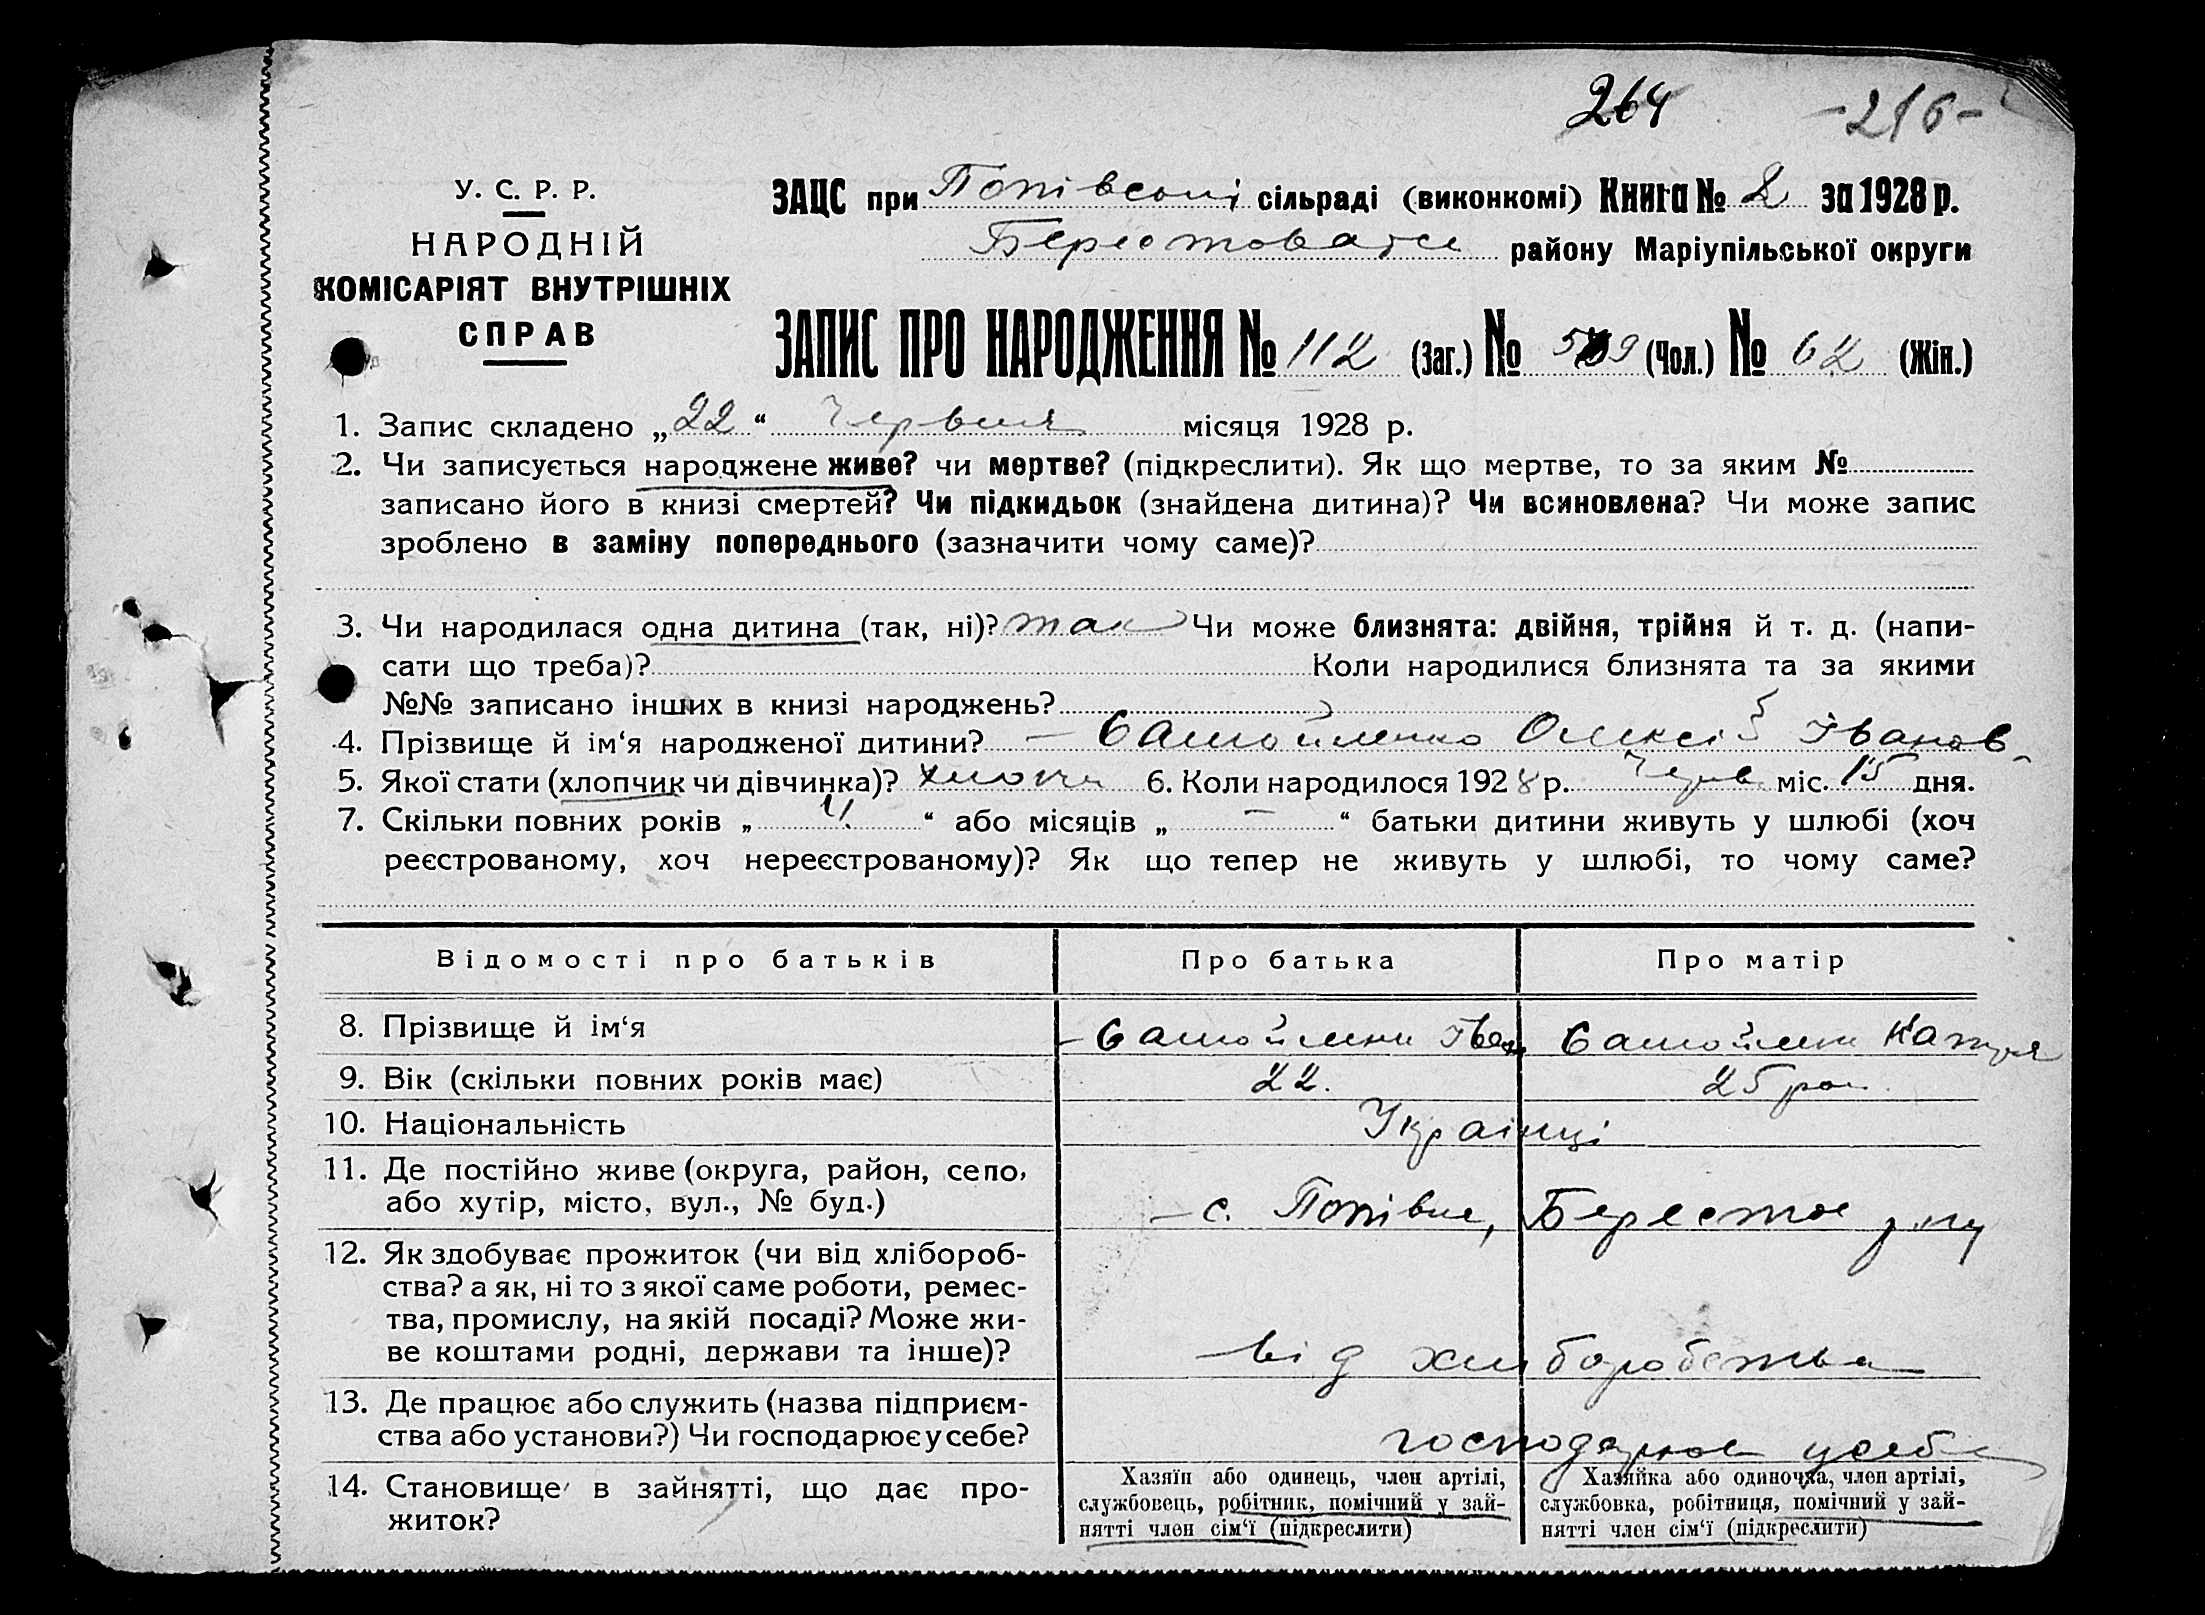 264 -216-
У. С. Р. Р.
НАРОДНІЙ
КОМІСАРІЯТ ВНУТРІШНІХ
СПРАВ
ЗАЦС при Попівській сільраді (виконкомі) Книга № 2 за 1928 р.
району Маріупільської округи
ЗАПИС ПРО НАРОДЖЕННЯ № 112 (Заг.) № (Чол.) № 62 (Жін.)
1. Запис складено „22“ Червня місяця 1928 р.
2. Чи записується народжене живе? чи мертве? (підкреслити). Як що мертве, то за яким №
записано його в книзі смертей? Чи підкидьок (знайдена дитина)? Чи всиновлена? Чи може запис
зроблено в заміну попереднього (зазначити чому саме)?
3. Чи народилася одна дитина (так, ні)? так Чи може близнята: двійня, трійня й т. д. (напи-
сати що треба)? Коли народилися близнята та за якими
№№ записано інших в книзі народжень?
4. Прізвище й ім‘я народженої дитини? – Самойленко Олексій Іванов
5. Якої стати (хлопчик чи дівчинка)? хлопчи 6. Коли народилося 1928 р. Черв. міс. 15 дня.
7. Скільки повних років „ 4 “ або місяців „ – “ батьки дитини живуть у шлюбі (хоч
реєстрованому, хоч нереєстрованому)? Як що тепер не живуть у шлюбі, то чому саме?
Відомості про батьків Про батька Про матір
8. Прізвище й ім‘я – Самойленко Іван Самойленко
9. Вік (скільки повних років має) 22. 25 рок.
10. Національність Українці
11. Де постійно живе (округа, район, село,
або хутір, місто, вул., № буд.) – с. Попівка,
12. Як здобуває прожиток (чи від хлібороб-
ства? а як, ні то з якої саме роботи, ремес-
тва, промислу, на якій посаді? Може жи-
ве коштами родні, держави та інше)? від хліборобства
13. Де працює або служить (назва підприєм-
ства або установи?) Чи господарює у себе? господарює у себе
14. Становище в зайнятті, що дає про-
житок?
Хазяїн або одинець, член артілі,
службовець, робітник, помічний у зай-
нятті член сім‘ї (підкреслити)
Хазяйка або одиночка, член артілі,
службовка, робітниця, помічний у зай-
нятті член сім‘ї (підкреслити)